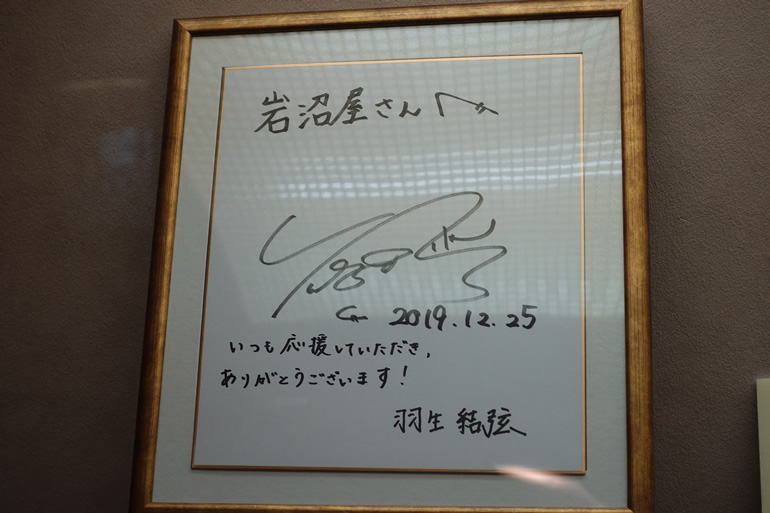 岩沼屋さんへ
2019.12.25
いつも応援していただき、
ありがとうございます!
羽生結弦